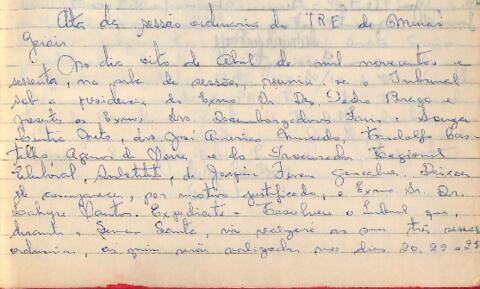 Ata da sessão ordinaria do TRE de Minas
Gerais
No dia oito de Abril de mil novecentos e
sessenta, na sala de sessões, reuniu-se o Tribunal
sob a presidencia do Exmo. Sr. Des. Pedro Braga e
presentes os Exmos. drs. Desembargadores Faria e Souza,
drs. José Americo Macedo,
tilho, Agenor de Senna, e do Procurador Regional
Eleitoral, Substituto, dr. Joaquim Ferreira Gonçalves. Deixou
de comparecer, por motivo justificado, o Exmo. Sr. Dr.
Santos. Expediente - Resolveu o Tribunal que,
durante a Semana Santa, não realizará as suas três sessões
ordinarias, as quais serão realizadas nos dias 20, 22 e 25